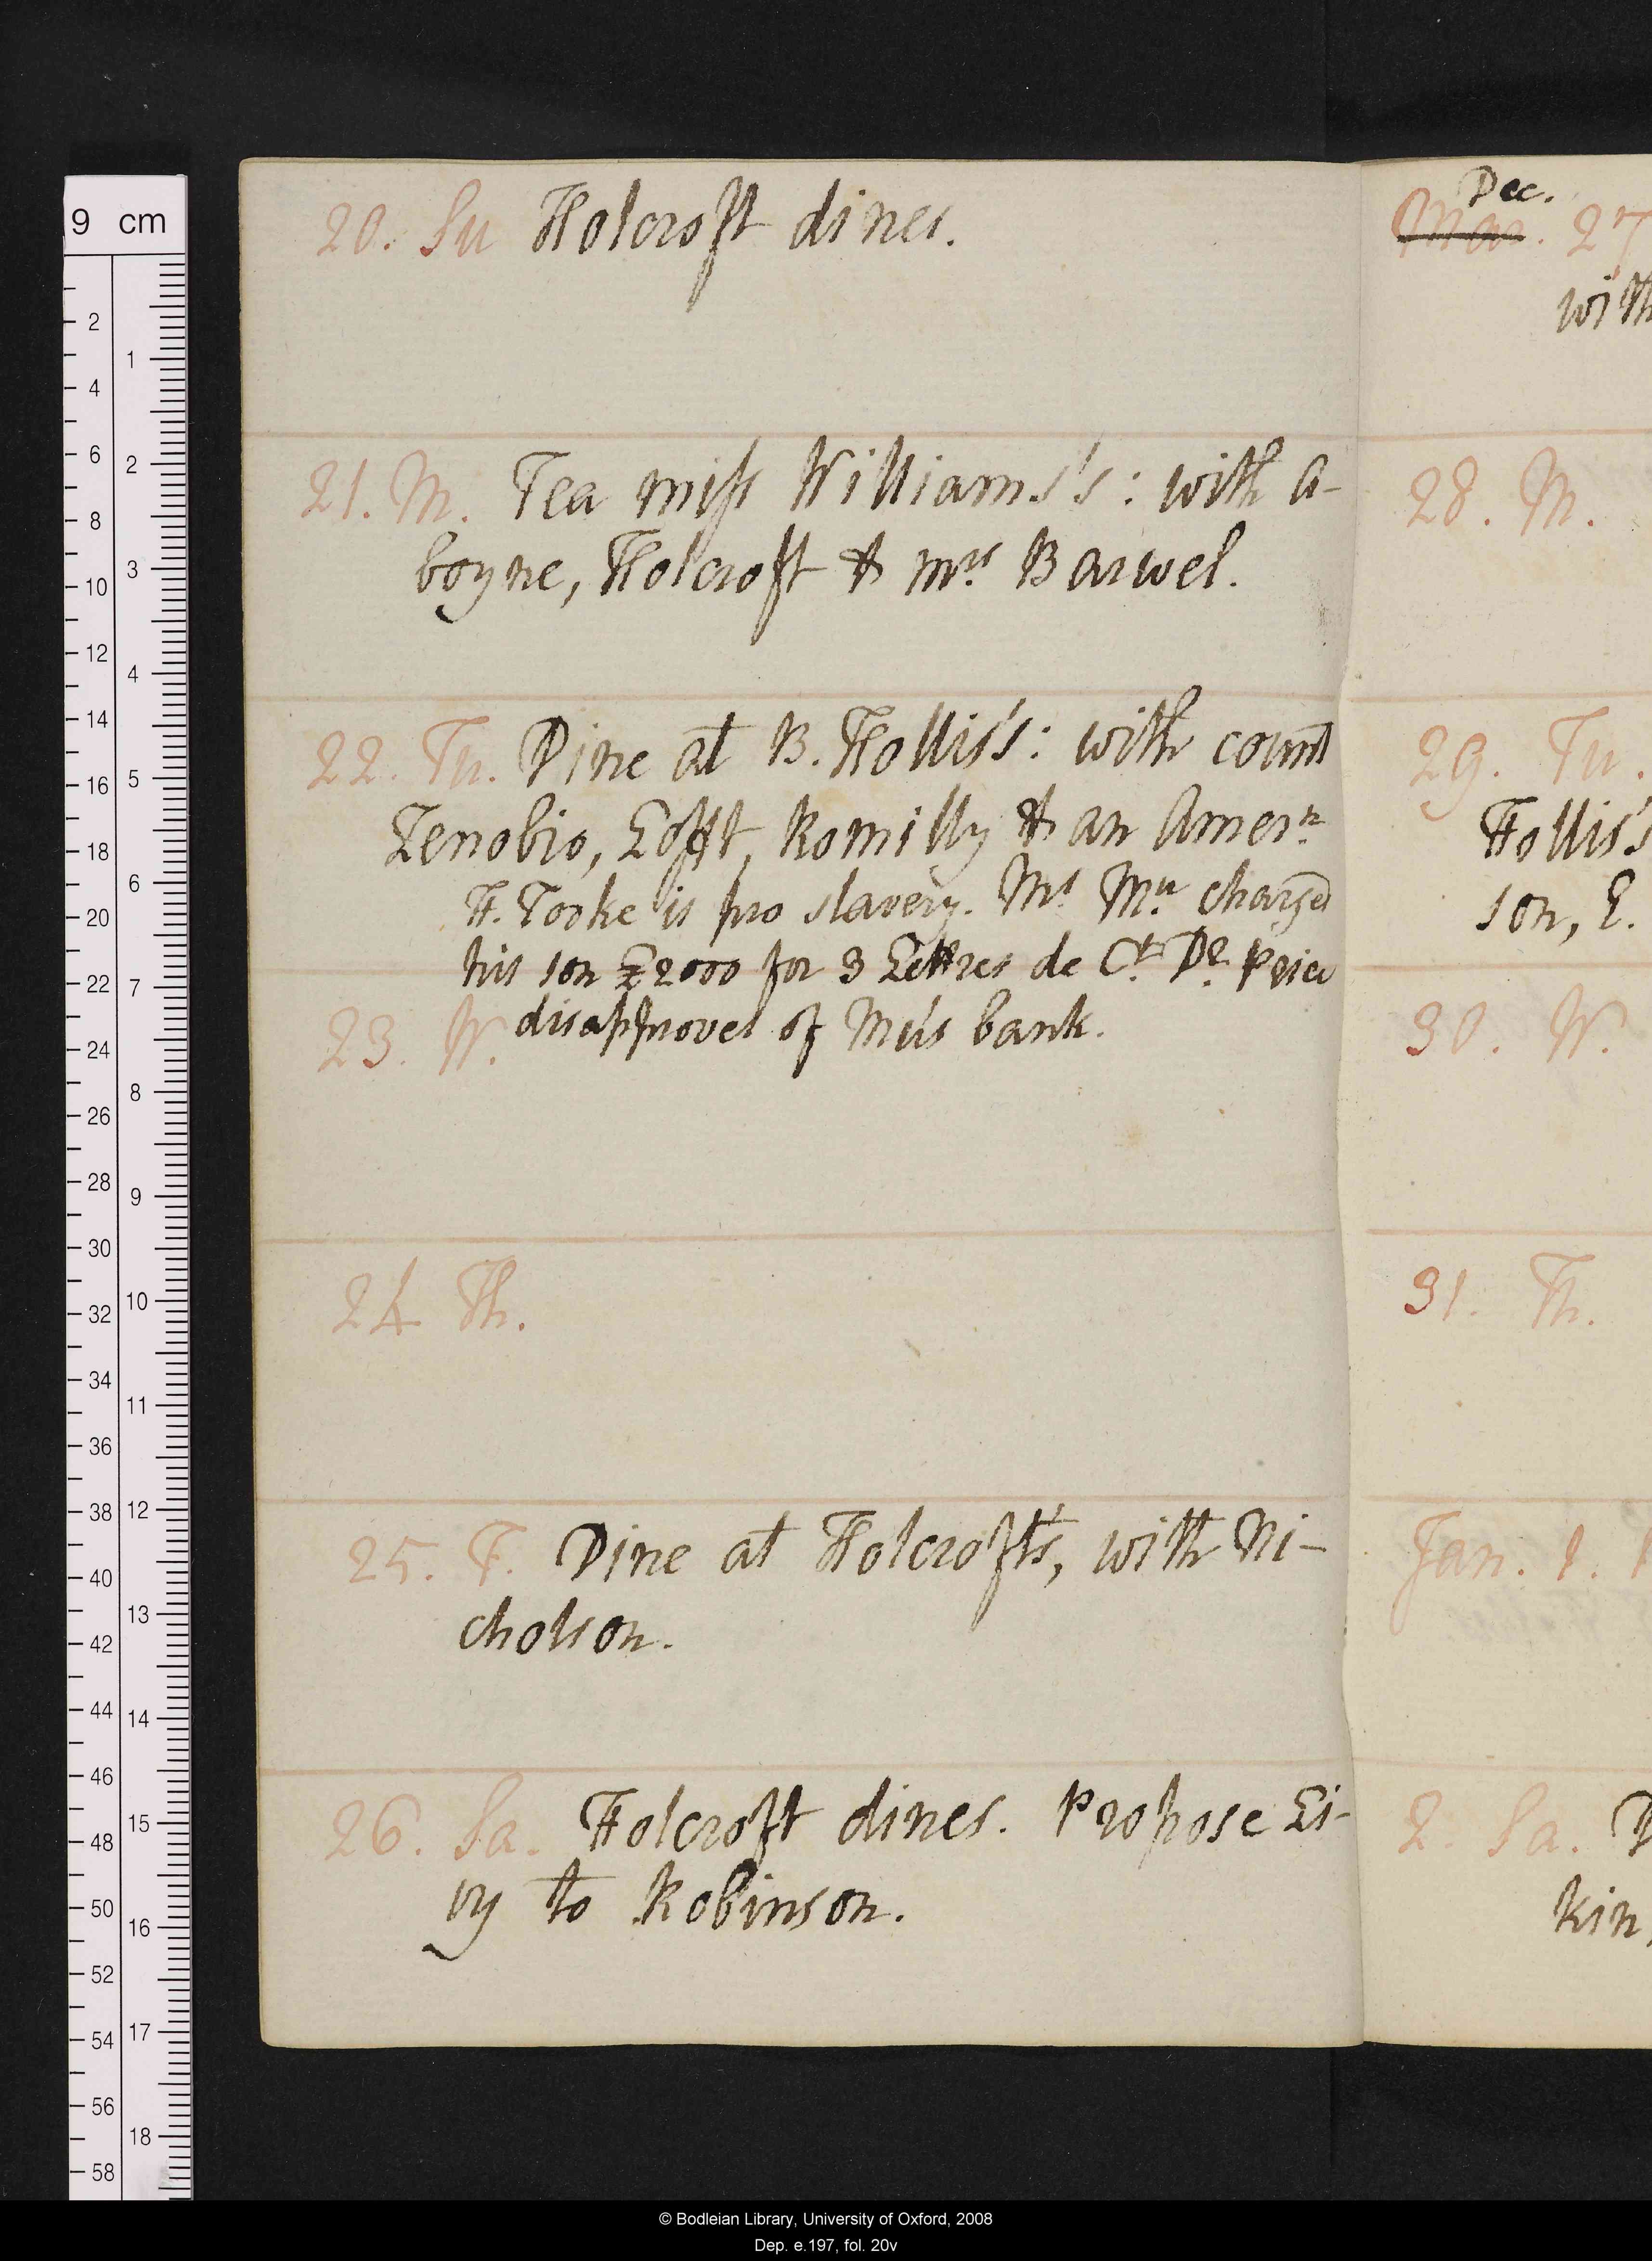 20. Su Holcroft dines.
21. M. Tea miss Williams's: with A-
boyne, Holcroft & mrs Barwel.
22. Tu. Dine at B. Hollis's: with count
Zenobio, Lofft, Romilly & an Amern
H. Tooke is pro slavery. Mr Mu charged
his son £2000 for 3 Lettres de Ct Dr Price
23. W. disapproves of Mu's bank.
24 Th.
25. F. Dine at Holcroft's, with Ni-
cholson.
26. Sa. Holcroft dines. Propose Li-
vy to Robinson.
Dec.
Mar. 27
with
28. M.
29. Tu.
Hollis's
son, L.
30. W.
31. Th.
Jan. 1.
2. Sa. D
kin,
9 cm
2
4
6
8
10
12
14
16
18
20
22
24
26
28
30
32
34
36
38
40
42
44
46
48
50
52
54
56
58
1
2
3
4
5
6
7
8
9
10
11
12
13
14
15
16
17
18
© Bodleian Library, University of Oxford, 2008
Dep. e.197, fol. 20v